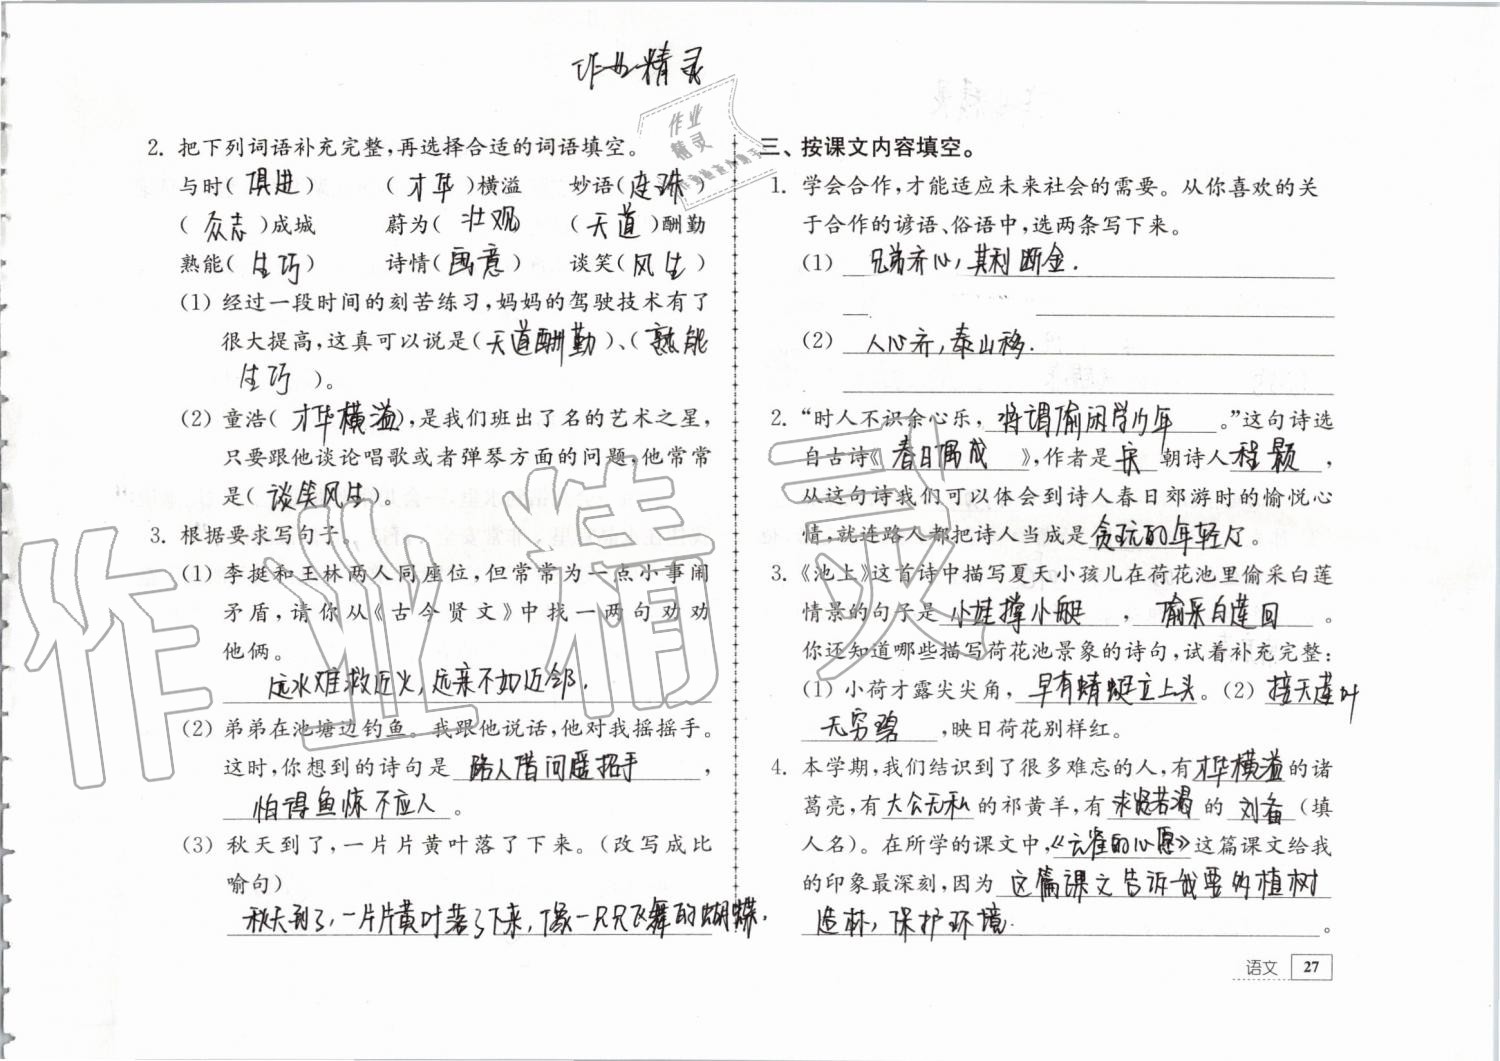 作业精灵
2. 把下列词语补充完整,再选择合适的词语填空。
与时(俱进) (才华)横溢 妙语(连珠)
(众志)成城 蔚为(壮观) (天道)酬勤
熟能(生巧) 诗情(画意) 谈笑(风生)
(1) 经过一段时间的刻苦练习,妈妈的驾驶技术有了
很大提高,这真可以说是(天道酬勤)、(熟能
生巧)。
(2) 童浩(才华横溢),是我们班出了名的艺术之星,
只要跟他谈论唱歌或者弹琴方面的问题,他常常
是(谈笑风生)。
3. 根据要求写句子。
(1) 李挺和王林两人同座位,但常常为一点小事闹
矛盾,请你从《古今贤文》中找一两句劝劝
他俩。
远水难救近火,远亲不如近邻.
(2) 弟弟在池塘边钓鱼。我跟他说话,他对我摇摇手。
这时,你想到的诗句是 路人借问遥招手 ,
怕得鱼惊不应人 。
(3) 秋天到了,一片片黄叶落了下来。(改写成比
喻句)
秋天到了,一片片黄叶落了下来,像一只只飞舞的蝴蝶.
三、按课文内容填空。
1. 学会合作,才能适应未来社会的需要。从你喜欢的关
于合作的谚语、俗语中,选两条写下来。
(1) 兄弟齐心,其利断金.
(2) 人心齐,泰山移.
2. “时人不识余心乐, 将谓偷闲学少年 。”这句诗选
自古诗《 春日偶成 》,作者是 宋 朝诗人 程颢 ,
从这句诗我们可以体会到诗人春日郊游时的愉悦心
情,就连路人都把诗人当成是 贪玩的年轻人 。
3. 《池上》这首诗中描写夏天小孩儿在荷花池里偷采白莲
情景的句子是 小娃撑小艇 , 偷采白莲回 。
你还知道哪些描写荷花池景象的诗句,试着补充完整:
(1) 小荷才露尖尖角, 早有蜻蜓立上头 。(2) 接天莲叶
无穷碧 ,映日荷花别样红。
4. 本学期,我们结识到了很多难忘的人,有 才华横溢 的诸
葛亮,有 大公无私 的祁黄羊,有 求贤若渴 的 刘备 (填
人名)。在所学的课文中,《云雀的心愿》这篇课文给我
的印象最深刻,因为 这篇课文告诉我要多植树
造林,保护环境. 。
语文 27
作业
精灵
作业精灵